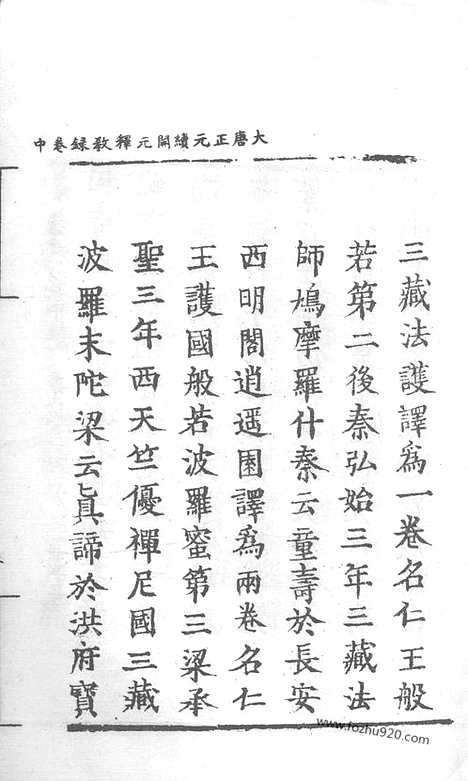 大唐正元續開元釋教録卷中
三藏法護譯爲一卷名仁王般
若第二後秦弘始三年三藏法
師鳩摩羅什秦云童壽於長安
西明閣逍遥園譯爲兩卷名仁
王護國般若波羅蜜第三梁承
聖三年西天竺優禪尼國三藏
波羅末陀梁云眞諦於洪府寶
www.fozhu920.com